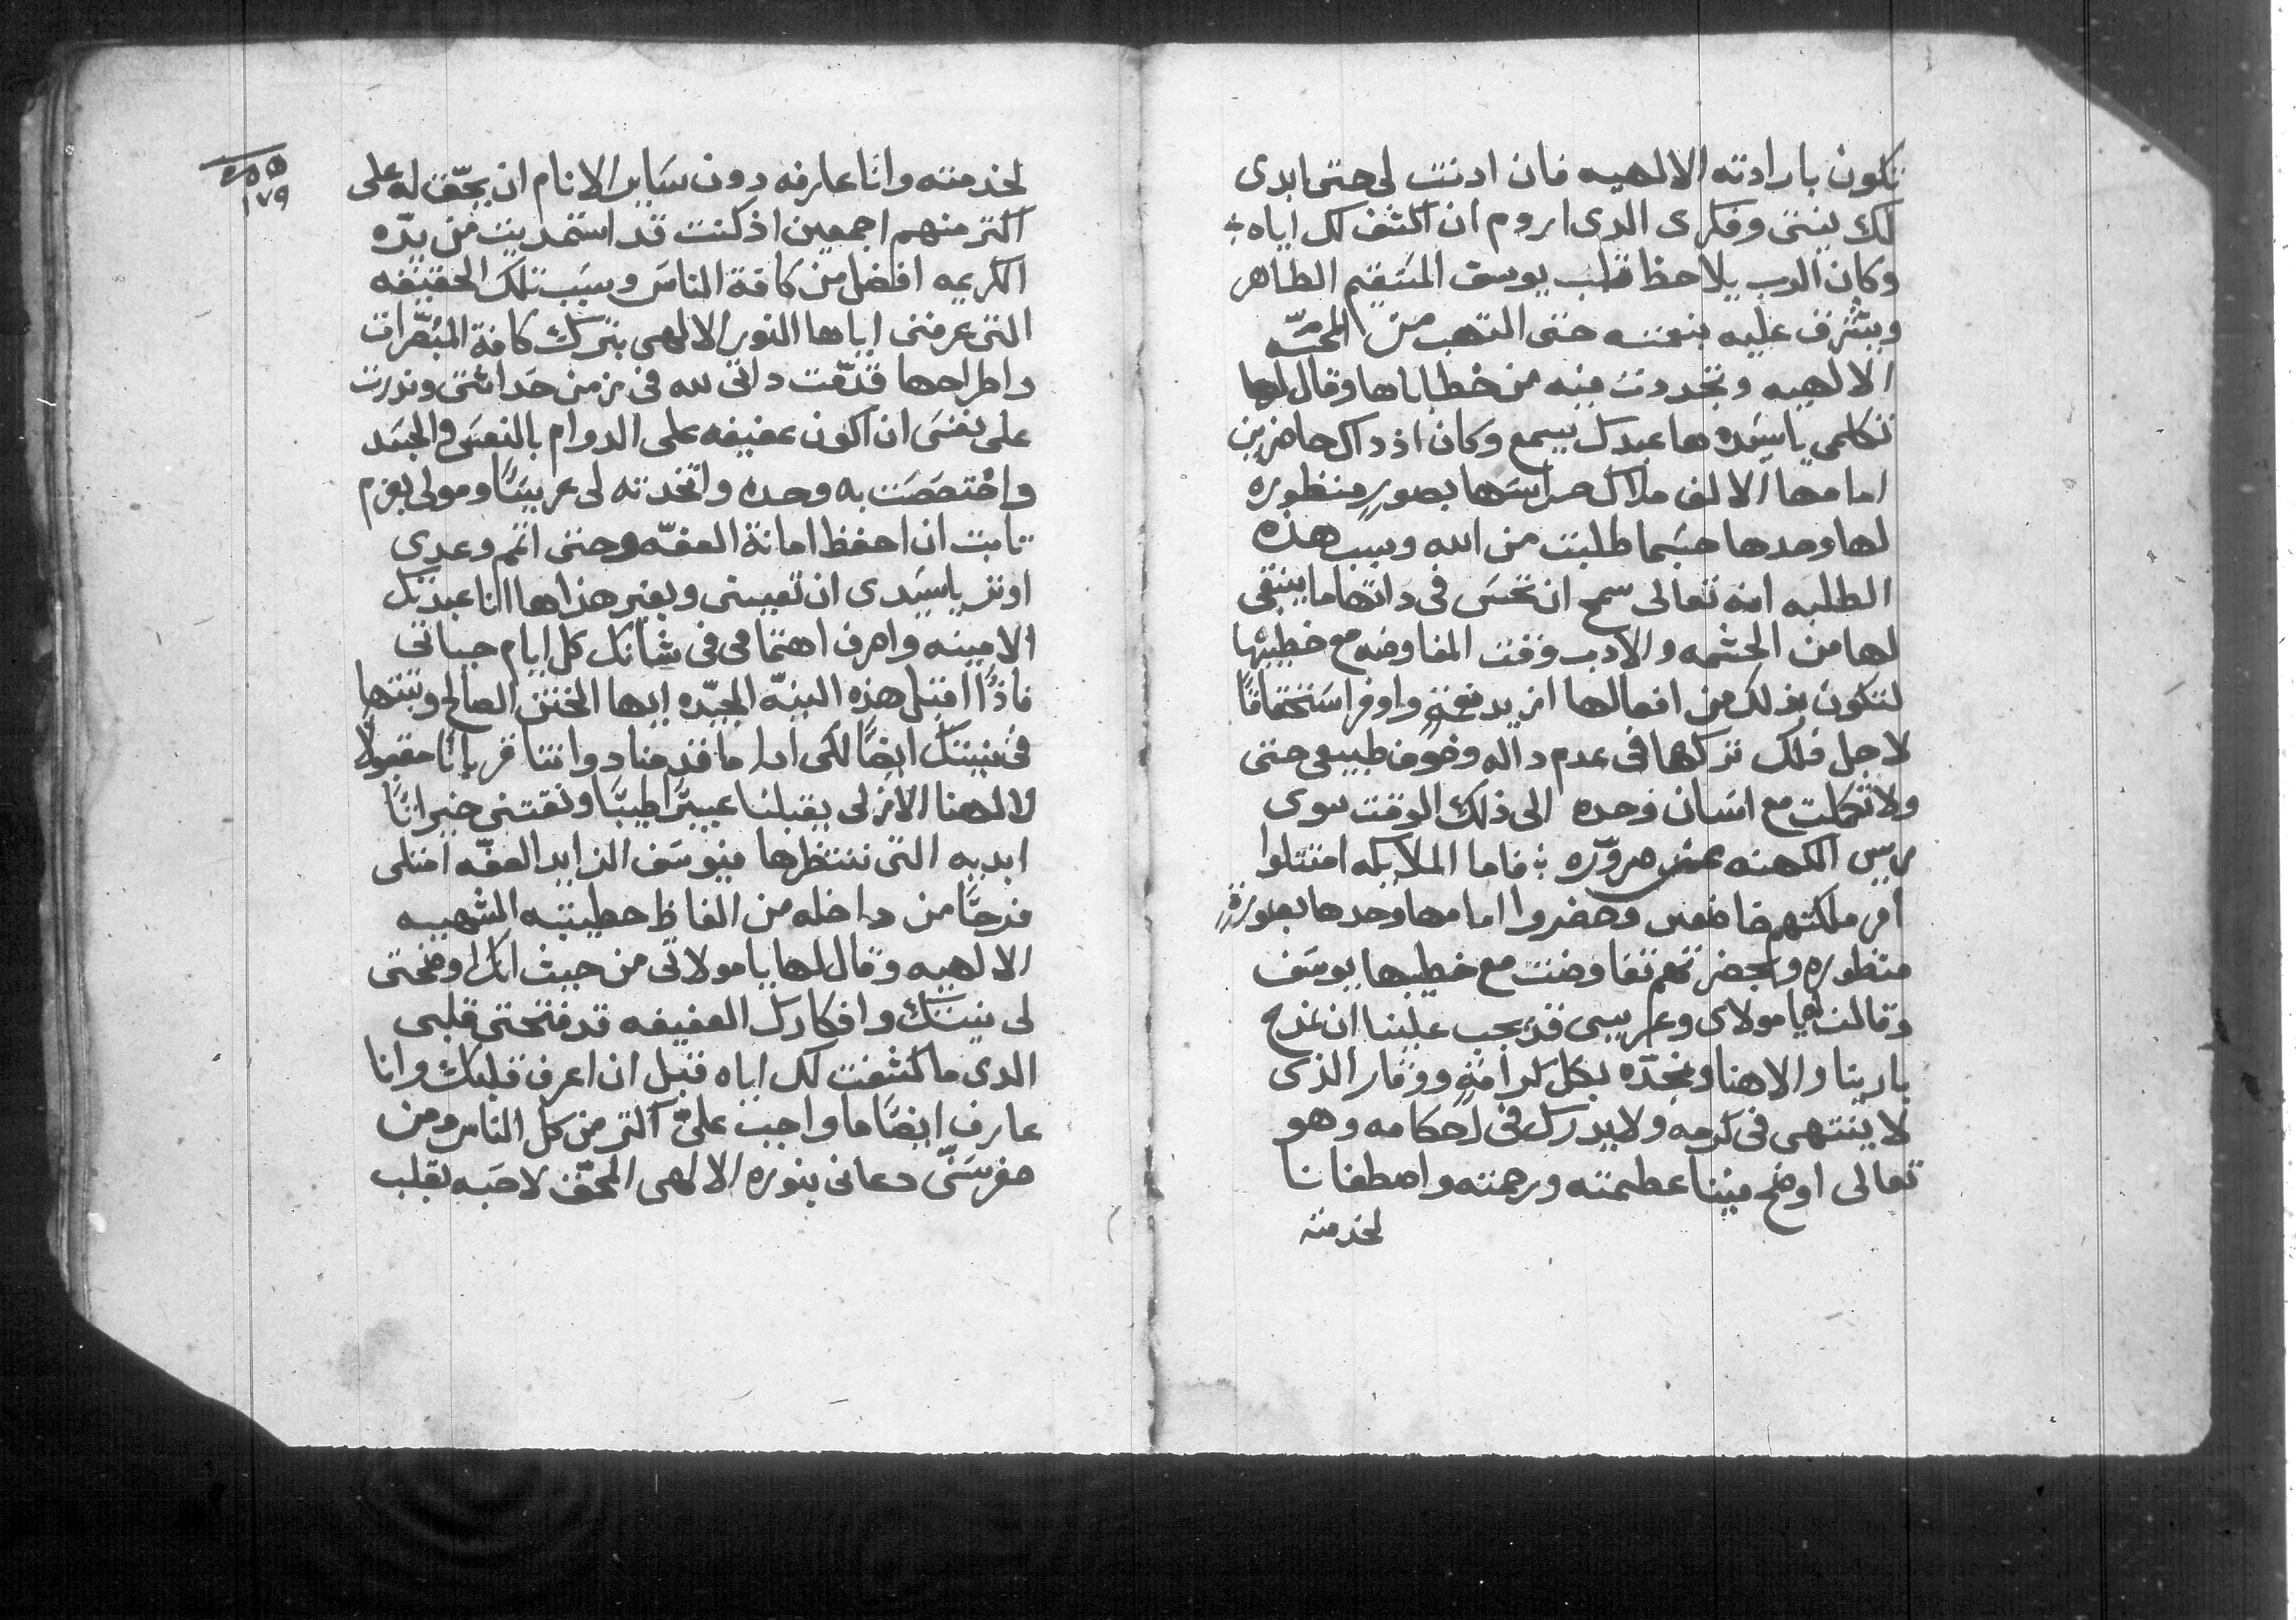 تكون بارادته الالهيه فان ادنت لى حتى ابدى
لك نيتى وفكرى الدى اروم ان اكشف لك اياه
وكان الرب يلاحظ قلب يوسف المستقيم الطاهر
ويشرف عليه بنعمته حتى التهب من المحبّه
الالهيه وتجددت فيه من خطاباها وقال لها
تكلمى ياسيده ها عبدك يسمع وكان اذ داك حاضرين
امامها الالف ملاك حراسها بصورٍ منظوره
لها وحدها حسَبما طلبت من الله وسبب هذه
الطلبه انه تعالى سمح ان تحسَ فى داتها ما ينبغى
لها من الحشمه والادب وقت المفاوضه مع خطيبها
لتكون بذلك من افعالها ازيد نعمةٍ واوفر استحقاقًا
لاجل ذلك تركها فى عدم داله وخوف طبيعى حتى
ولا تكلمت مع انسَان وحده الى ذلك الوقت سوى
ريس الكهنه عن ضروره فاما الملايكه امتتلوا
امر ملكتهم خاضعين وحضروا امامها وحدها بصورةٍ
منظوره وبحضرتهم تفاوضت مع خطيبها يوسَف
وقالت له يا مولاى وعريسى قد يجب علينا ان نمدح
بارينا والاهنا ونمجّده بكل كرامةٍ ووقار الذى
لا ينتهى فى كرمه ولا يدرك فى احكامه وهو
تعالى اوضح فينا عظمته ورحمته واصطفانا
لخدمته
٢٥٥
١٧٩
لخدمته وانا عارفه دون سَاير الانام ان يحقّ له على
اكتر منهم اجمعين اذ كنت قد استمديت من يدّه
الكريمه افضل من كافة الناسَ وسبَب تلك الحقيقه
التى عرفنى اياها النور الالهى بترك كافة المبُصّرات
واطراحها قدّمت داتى لله فى زمن حَداثتى وندرت
على نفسَى ان اكون عفيفه على الدوام بالنفسَ والجسَد
واختصَصَت به وحده واتخدته لى عريسًا ومولى بعزم
تابت ان احفظ امانة العفّه وحتى اتم وعدى
اوتر ياسيَدى ان تعيننى وبغير هذا ها انا عبدتك
الامينه واصرف اهتمامى فى شانك كل ايام حياتى
فاذًا اقبل هذه النيّه المجيّده ايها الختن الصالح وتبتها
فى نيتك ايضًا لكى ادا ما قدمنا دواتنا قربانًا مقبولًا
لالهنا الازلى يقبلنا عبيرًا طيبًا ونقتنى خيراتًا
ابديه التى ننتظرها فيوسَف الزايد العفّه امتلى
فرحًا من داخله من الفاظ خطيبته الشهيه
الالهيه وقال لها يا مولاتى من حيث انك اوضحتى
لى نيتك وافكارك العفيفه قد فتحتى قلبى
الدى ما كشفت لك اياه قبل ان اعرف قلبك وانا
عارف ايضًا ما واجب علىّ اكتر من كل الناس ومن
صغر سَنّى دعانى بنوره الالهى المحقّ لاحبه بقلب